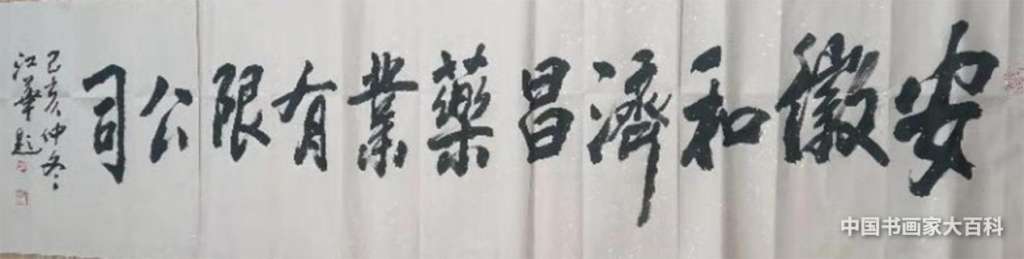 安徽和濟昌藥業有限公司
己亥仲冬
江華題
中国书画家大百科